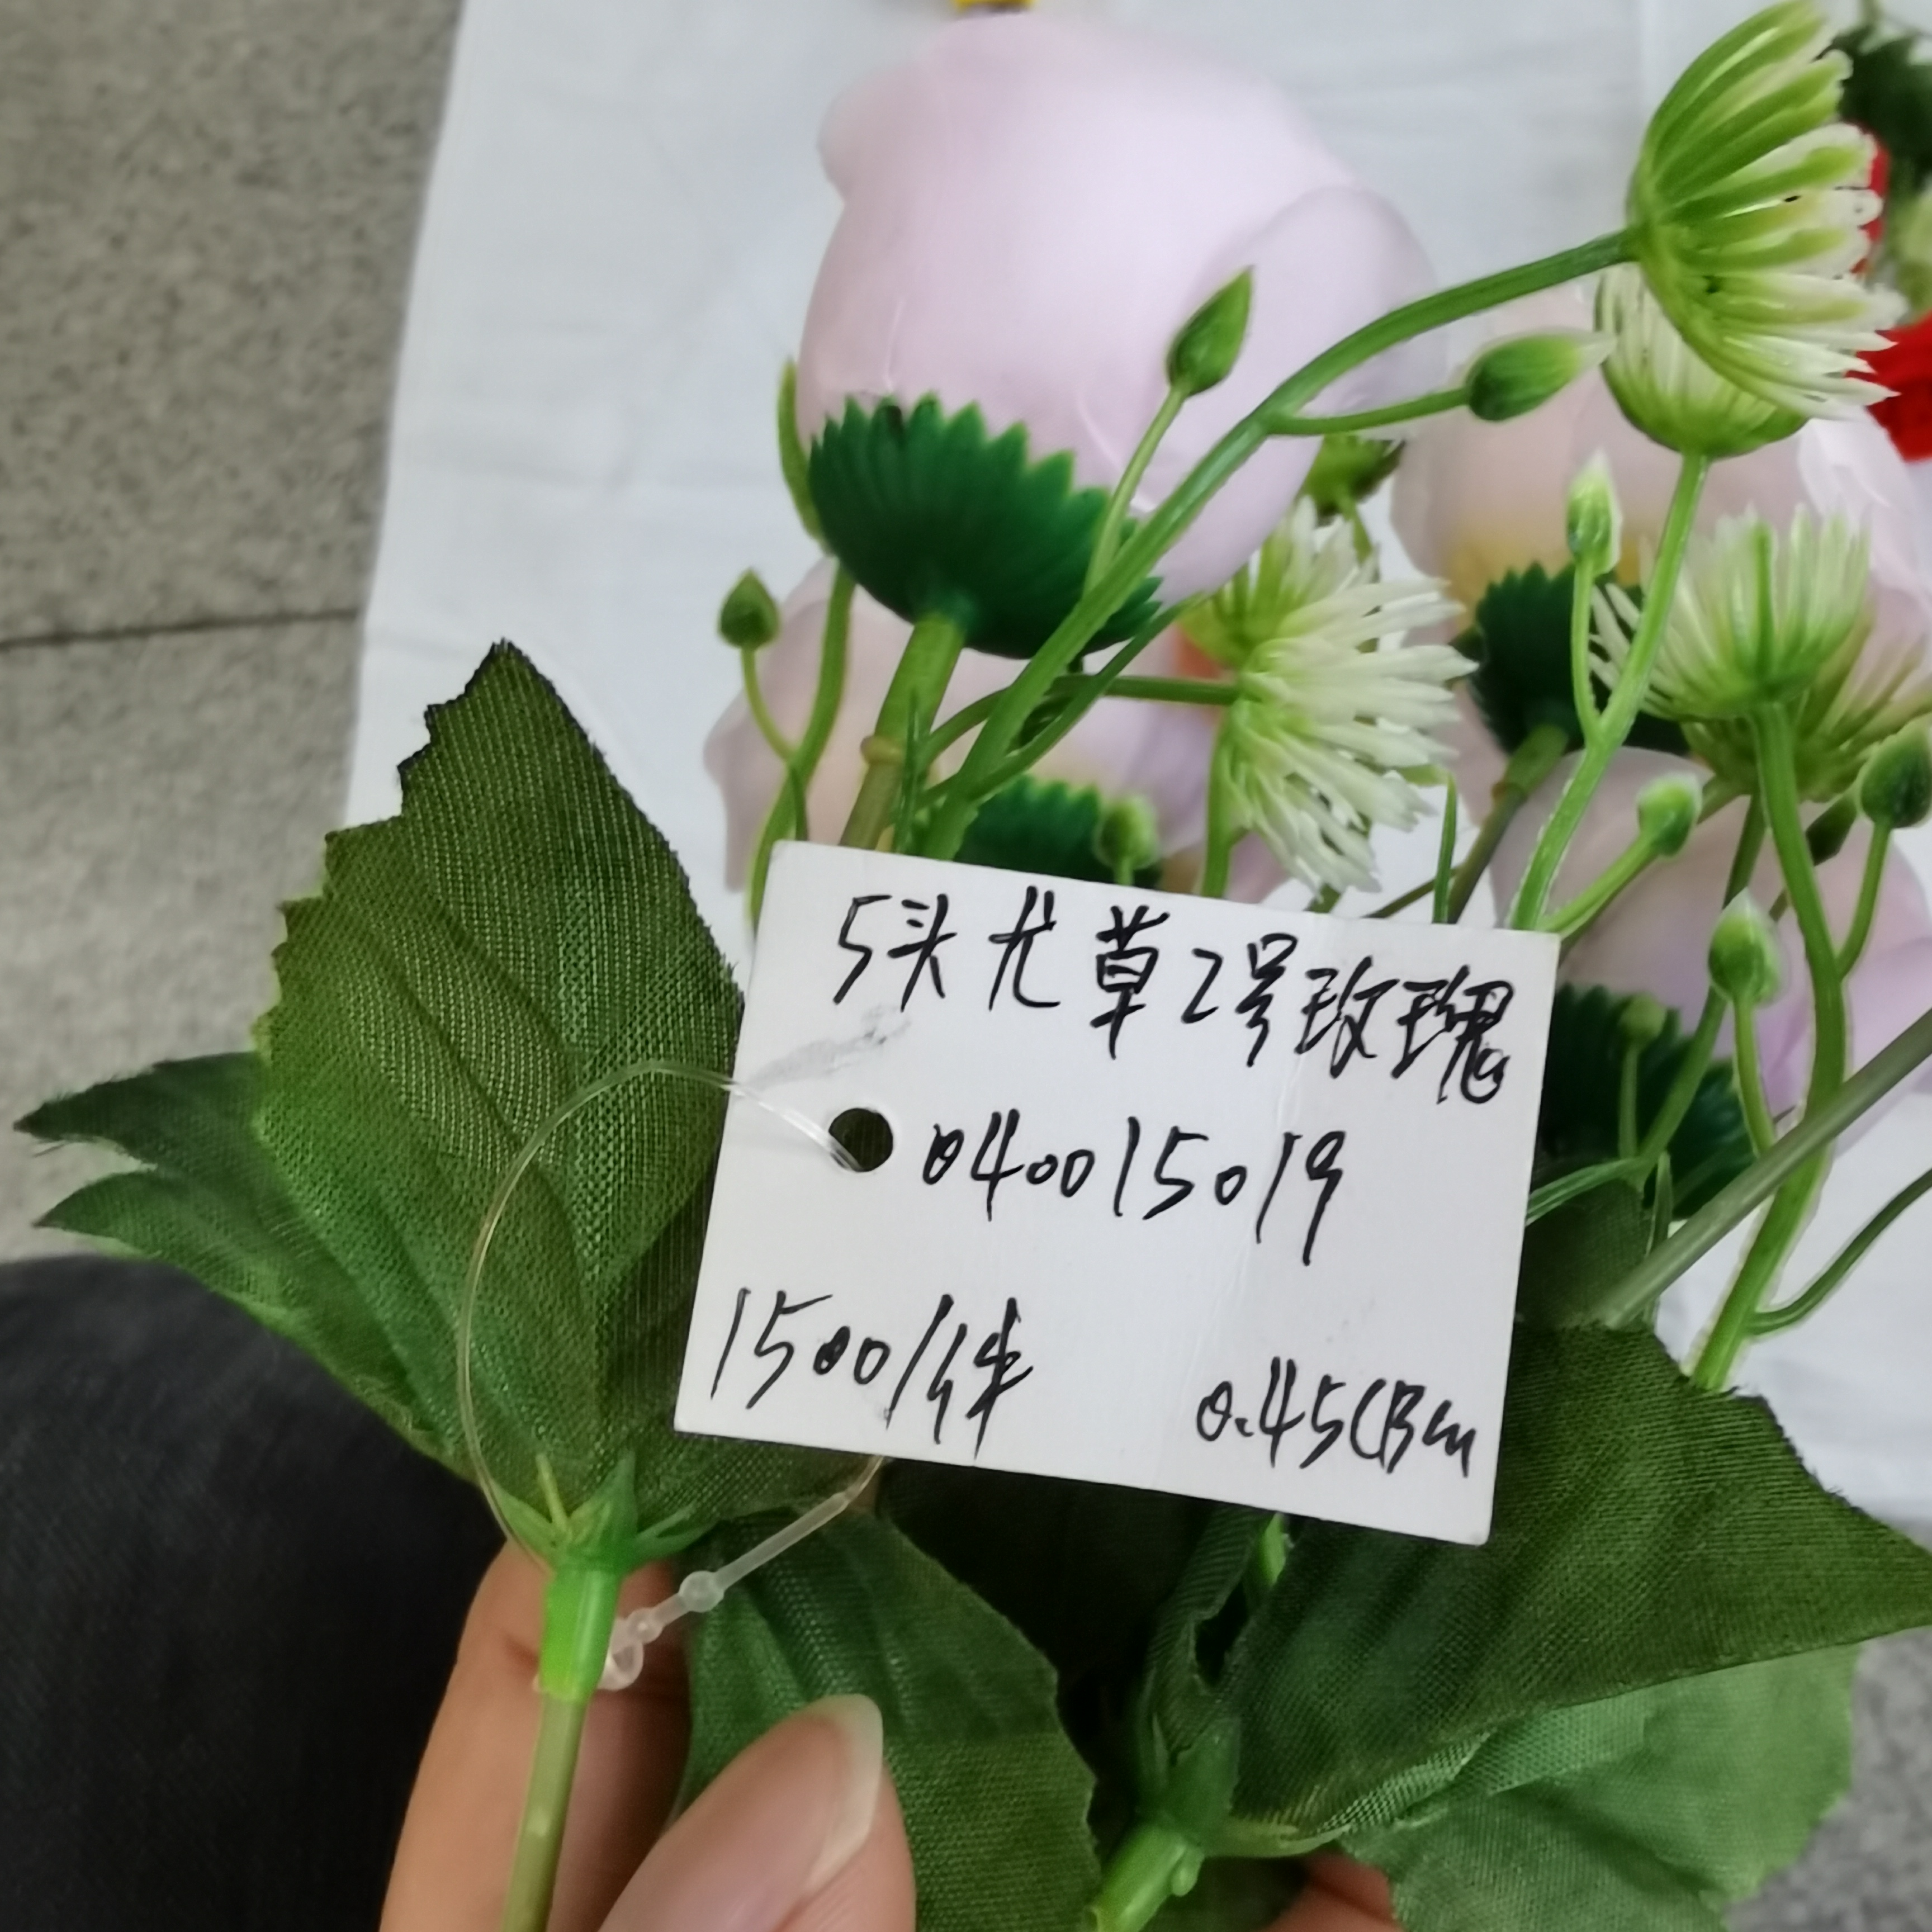 5头尤草2号玫瑰
040015019
1500/件
0.45CBm